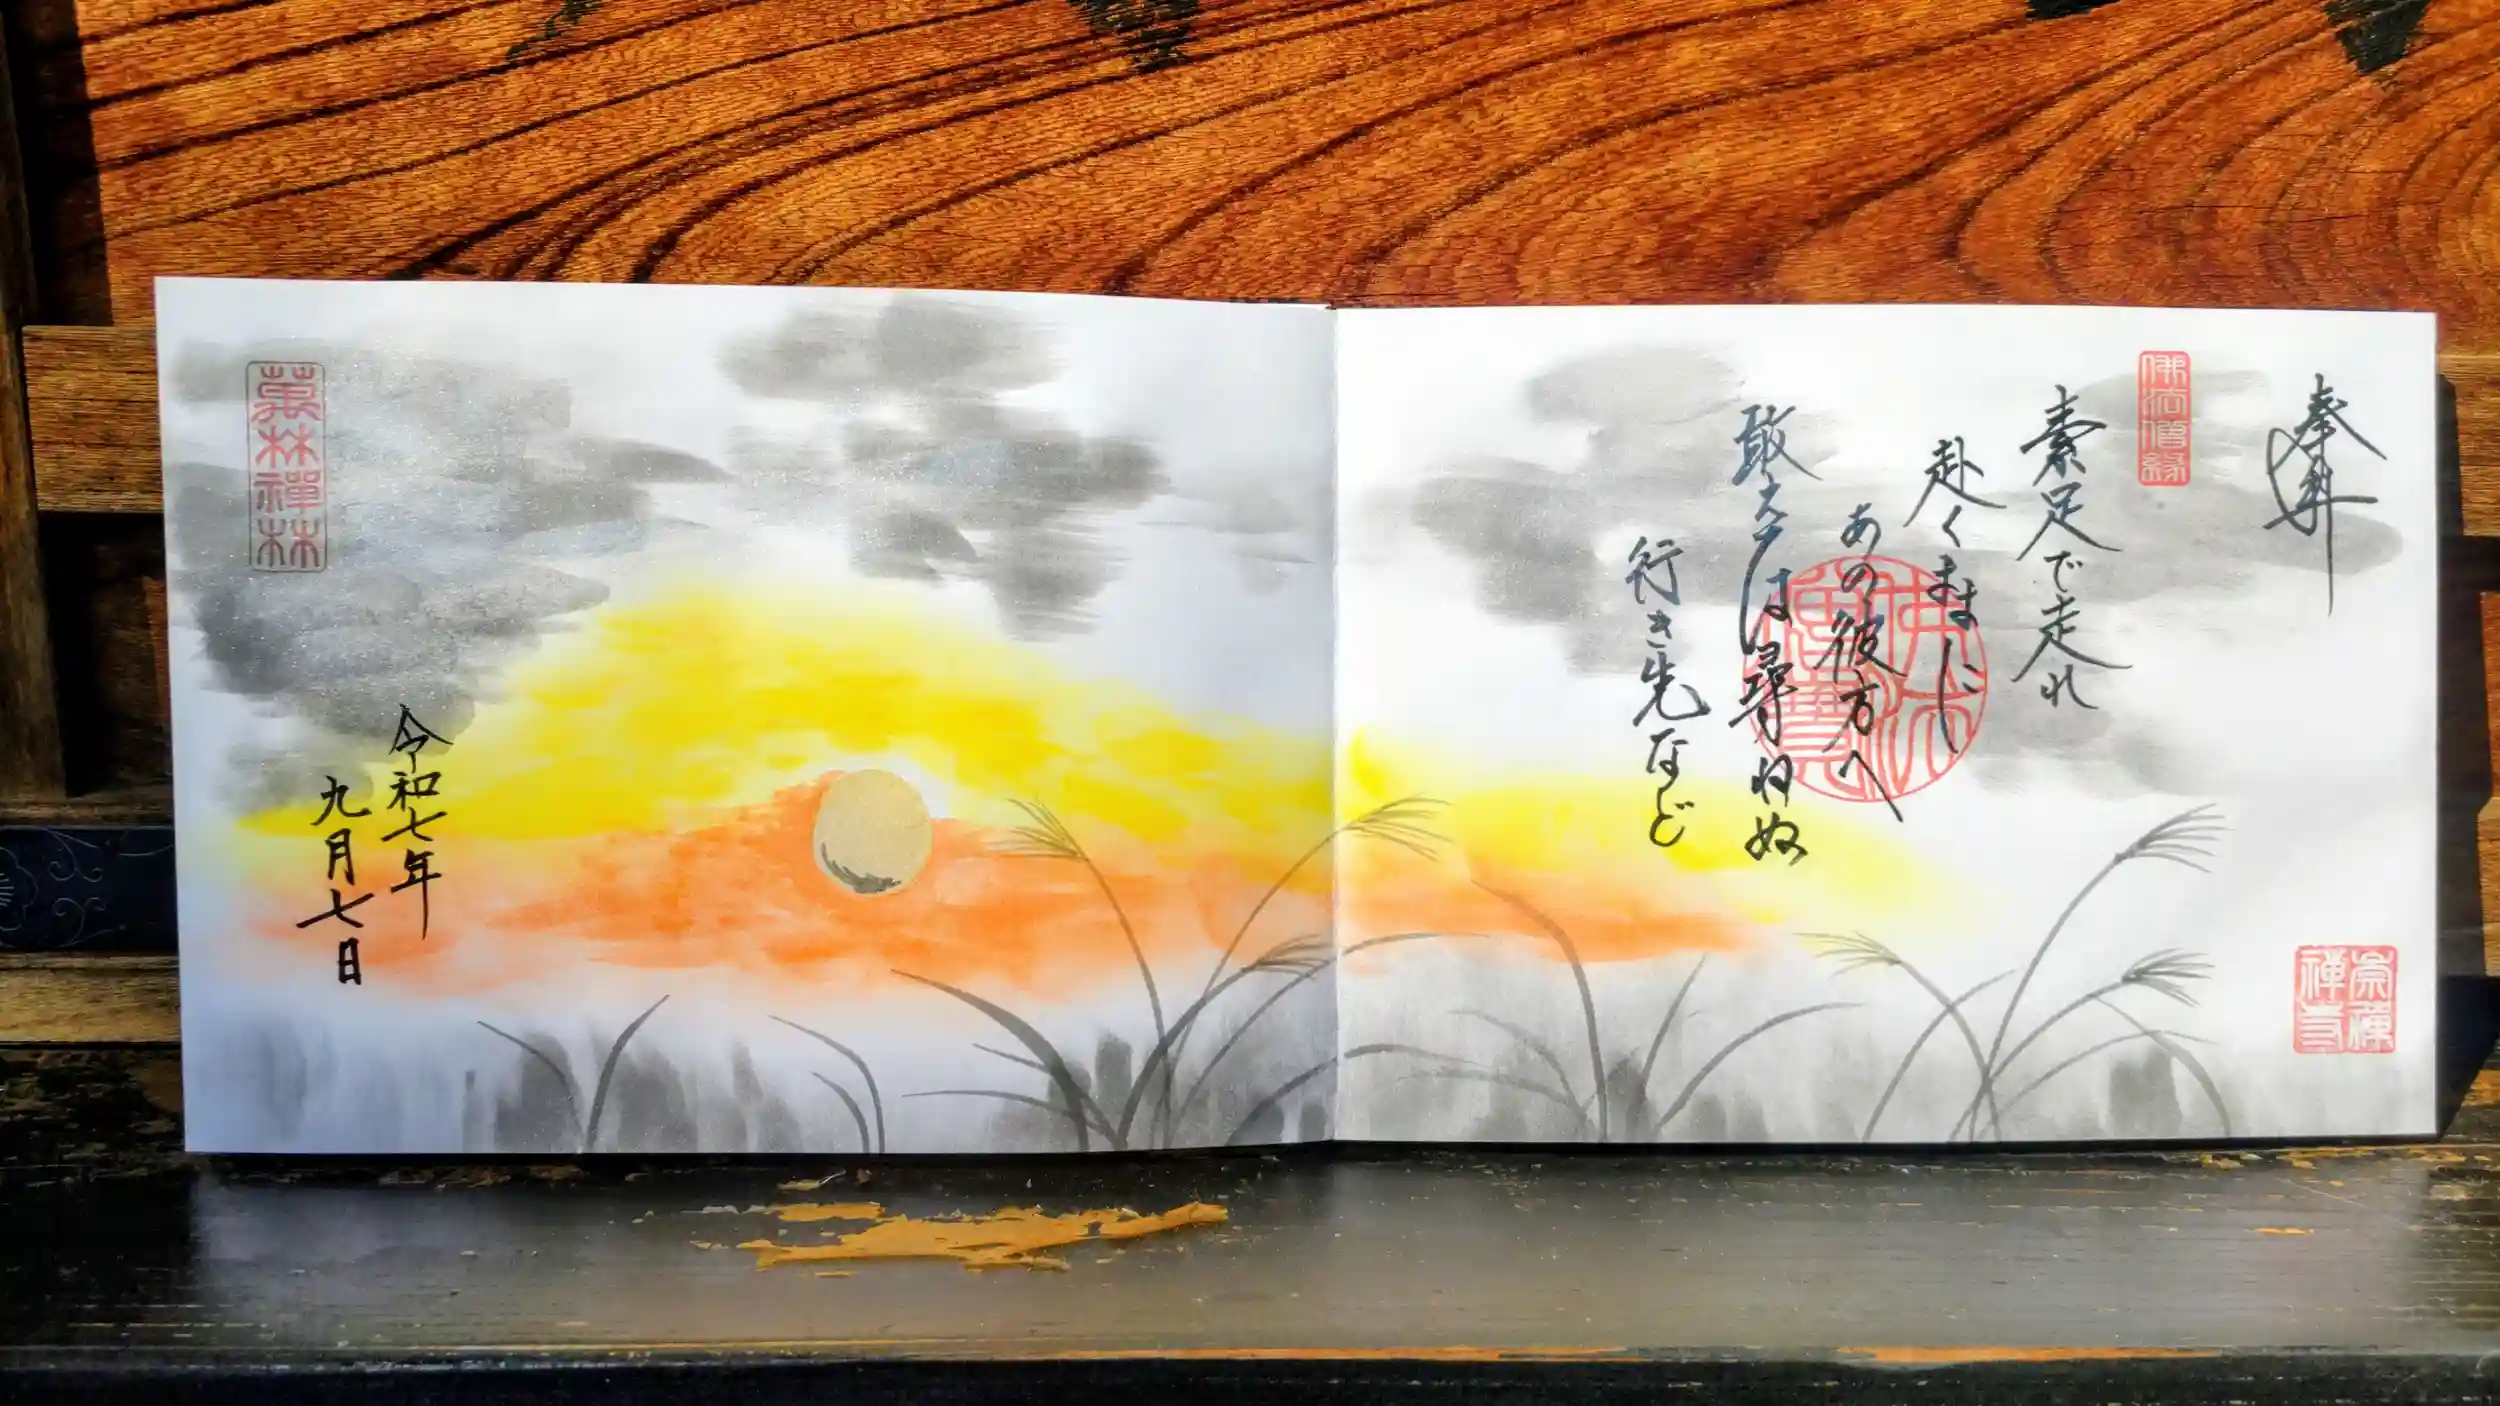 奉拝
素足で走れ
赴くままに
あの彼方へ
敢えては尋ねぬ
行き先など
佛法僧寶
令和七年
九月七日
菓林禪林